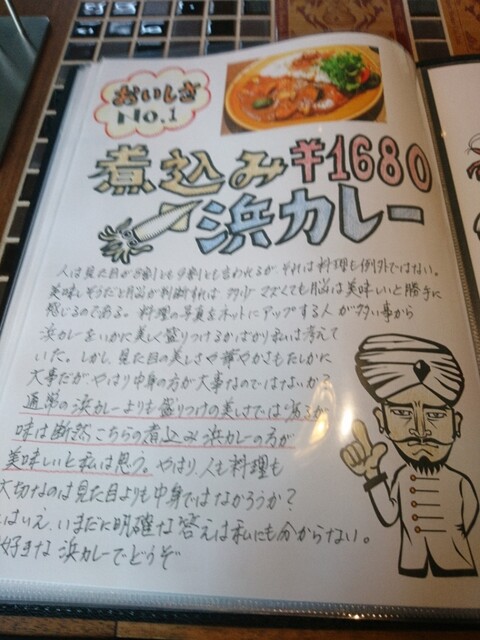 おいしさ
No.1
煮込み ¥1680
浜カレー
人は見た目が8割とも9割とも言われるが それは料理も例外ではない。
美味しそうだと脳が判断すれば 多少マズくても脳は美味しいと勝手に
感じるのである。料理の写真をネットにアップする人が多い事から
浜カレーをいかに美しく盛りつけるかばかり私は考えて
いた。しかし、見た目の美しさや華やかさもたしかに
大事だが やはり中身の方が大事なのではないか?
通常の浜カレーよりも盛りつけの美しさでは劣るが
味は断然こちらの煮込み浜カレーの方が
美味しいと私は思う。やはり、人も料理も
大切なのは見た目よりも中身ではなかろうか?
とはいえ、いまだに明確な答えは私にも分からない。
好きな浜カレーでどうぞ